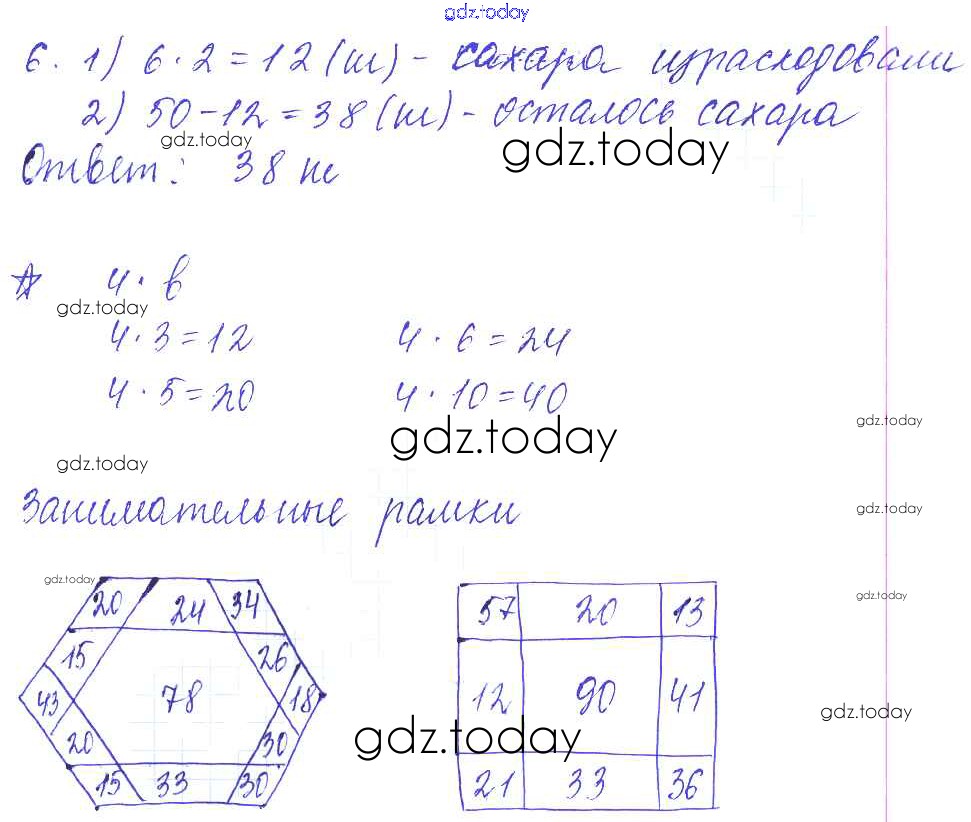 gdz.today
6. 1) 6 · 2 = 12 (ш) - сахара израсходовали
2) 50 - 12 = 38 (ш) - осталось сахара
gdz.today
gdz.today
Ответ: 38 ш
4 · в
gdz.today
4 · 3 = 12 4 · 6 = 24
4 · 5 = 20 4 · 10 = 40
gdz.today
gdz.today
gdz.today
Занимательные рамки
gdz.today
gdz.today
gdz.today
20 24 34
15 26
43 78 18
20 30
15 33 30
57 20 13
12 90 41
21 33 36
gdz.today
gdz.today